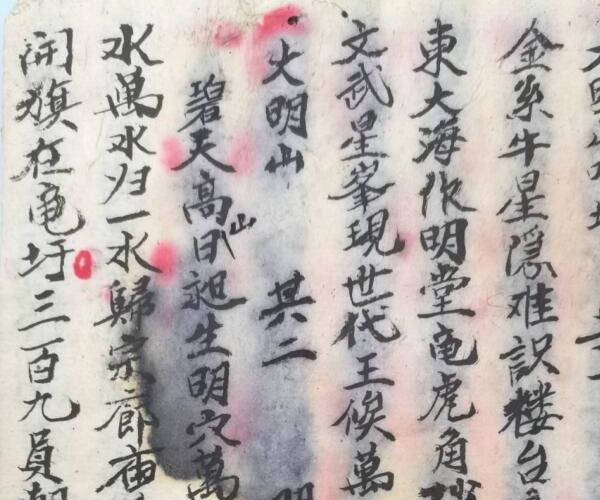 金系牛星隐难識楼台
東大海作明堂亀虎角
文武星峯現世代王侯萬
大明山 其二
碧天高山生明穴萬
水萬水归一水歸宗廊庙
開旗在亀圩三百九員朝